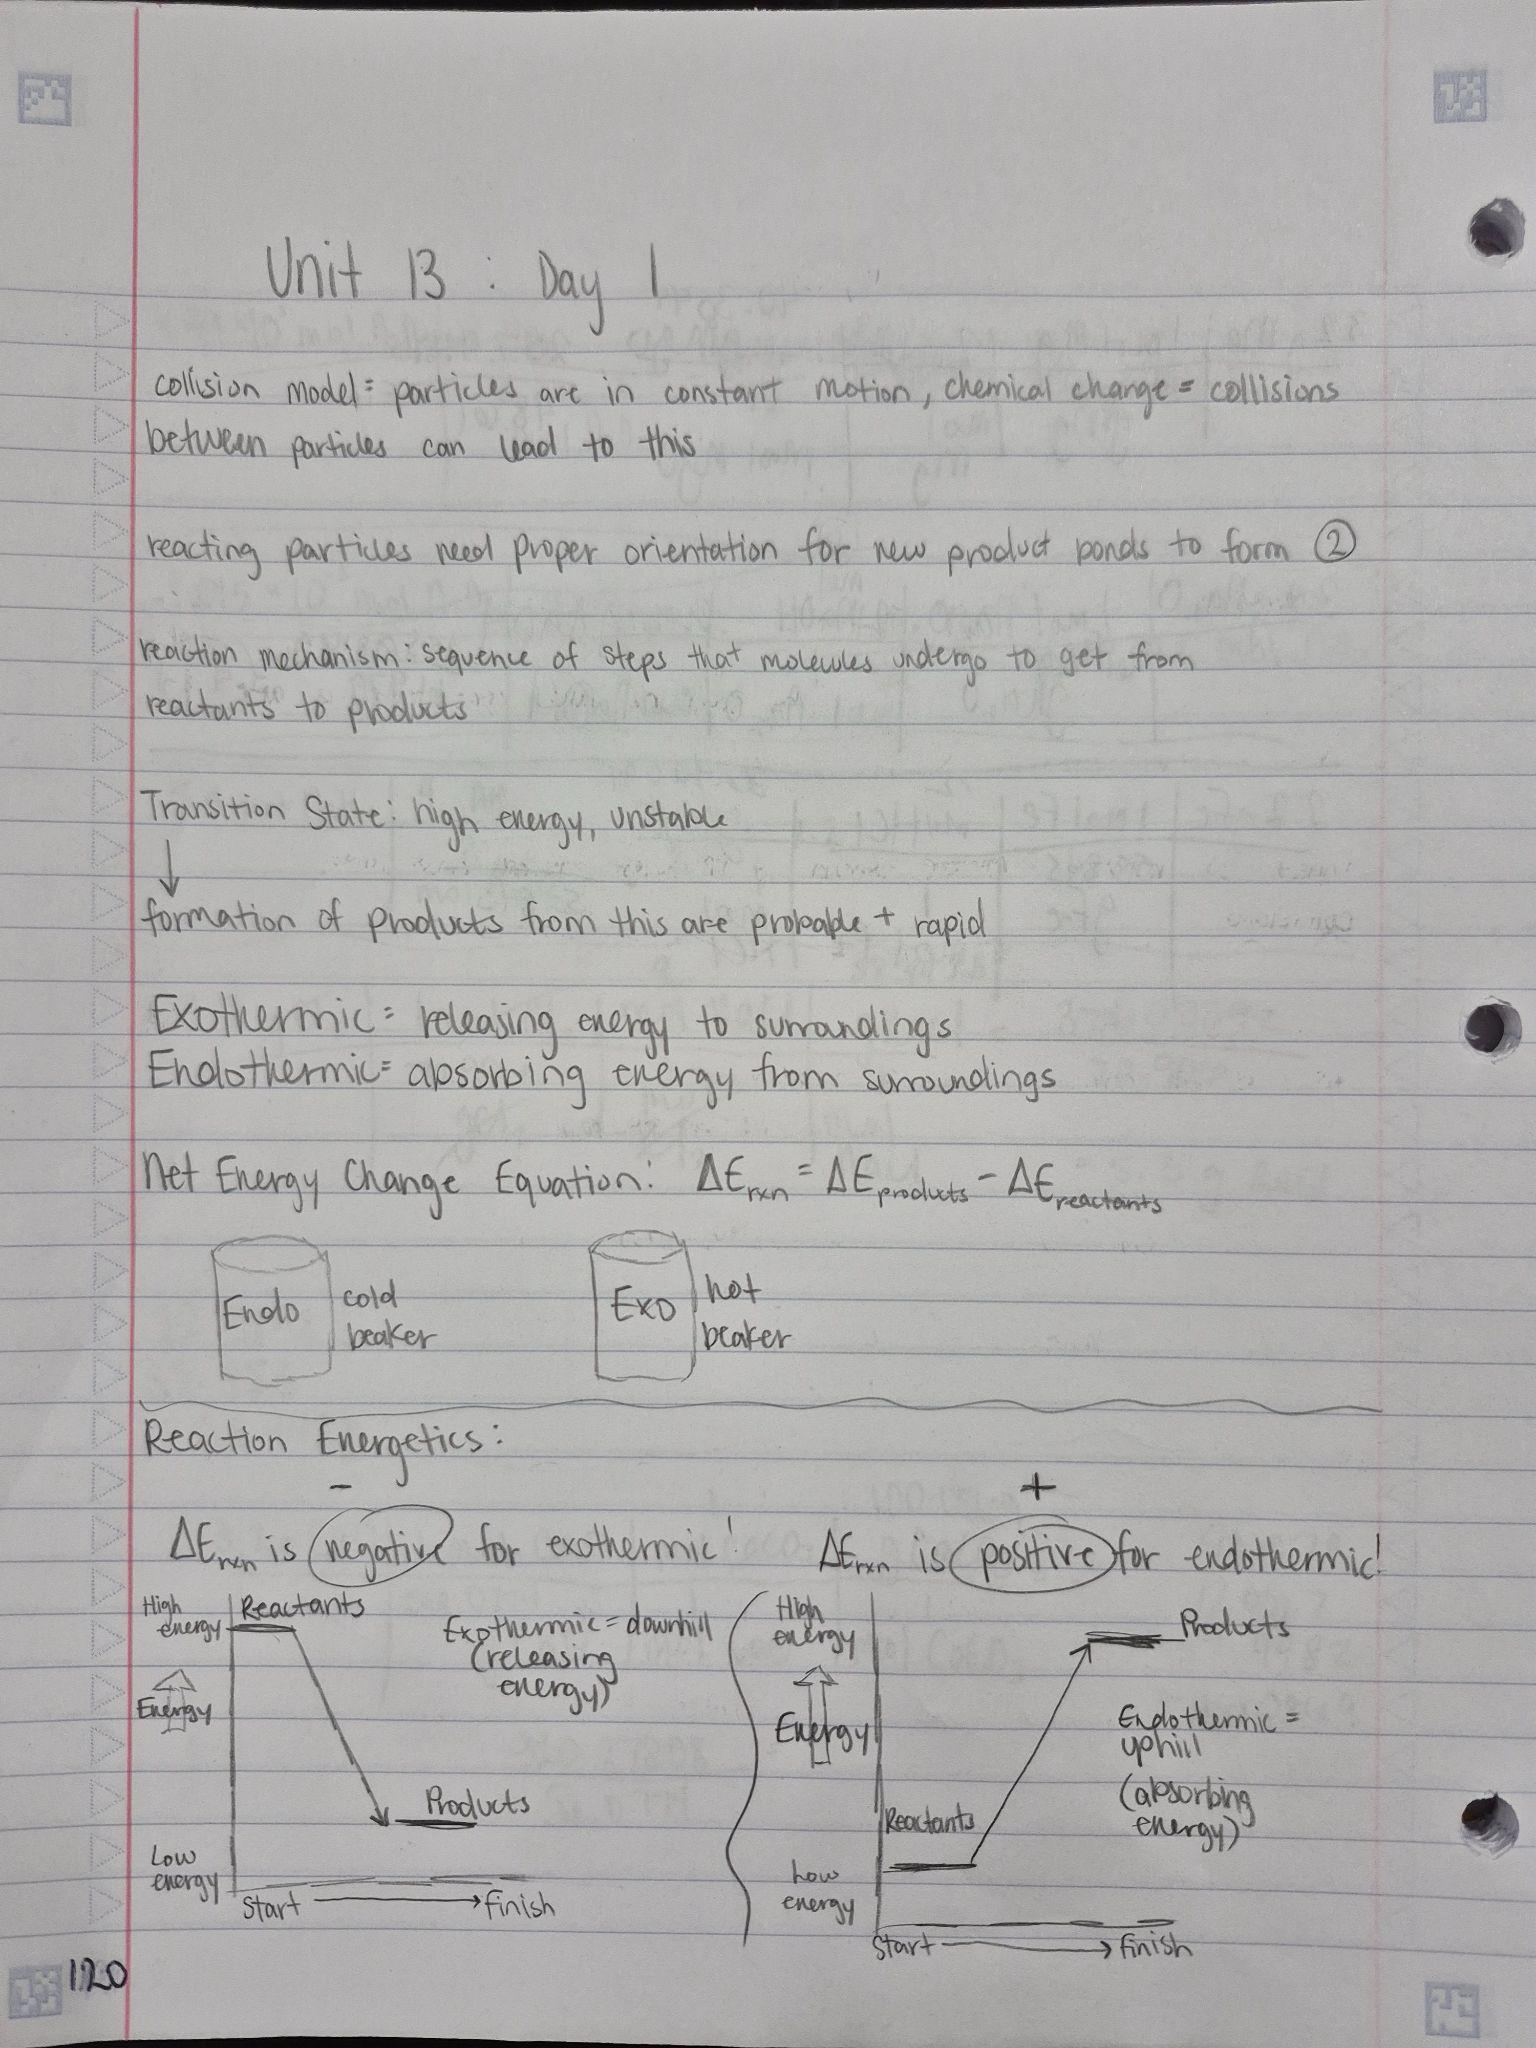 Unit 13 : Day 1
collision model = particles are in constant motion, chemical change = collisions
between particles can lead to this
reacting particles need proper orientation for new product bonds to form ②
reaction mechanism: sequence of steps that molecules undergo to get from
reactants to products
Transition State: high energy, unstable
↓
formation of products from this are probable + rapid
Exothermic = releasing energy to surroundings
Endothermic = absorbing energy from surroundings
Net Energy Change Equation: ΔErxn = ΔEproducts - ΔEreactants
Endo
cold
beaker
Exo
hot
beaker
Reaction Energetics:
-
ΔErxn is negative for exothermic!
High
energy
Reactants
Exothermic = downhill
(releasing
energy)
Energy
Products
Low
energy
Start → finish
+
ΔErxn is positive for endothermic!
High
energy
Products
Energy
Endothermic =
uphill
(absorbing
energy)
Reactants
Low
energy
Start → finish
120